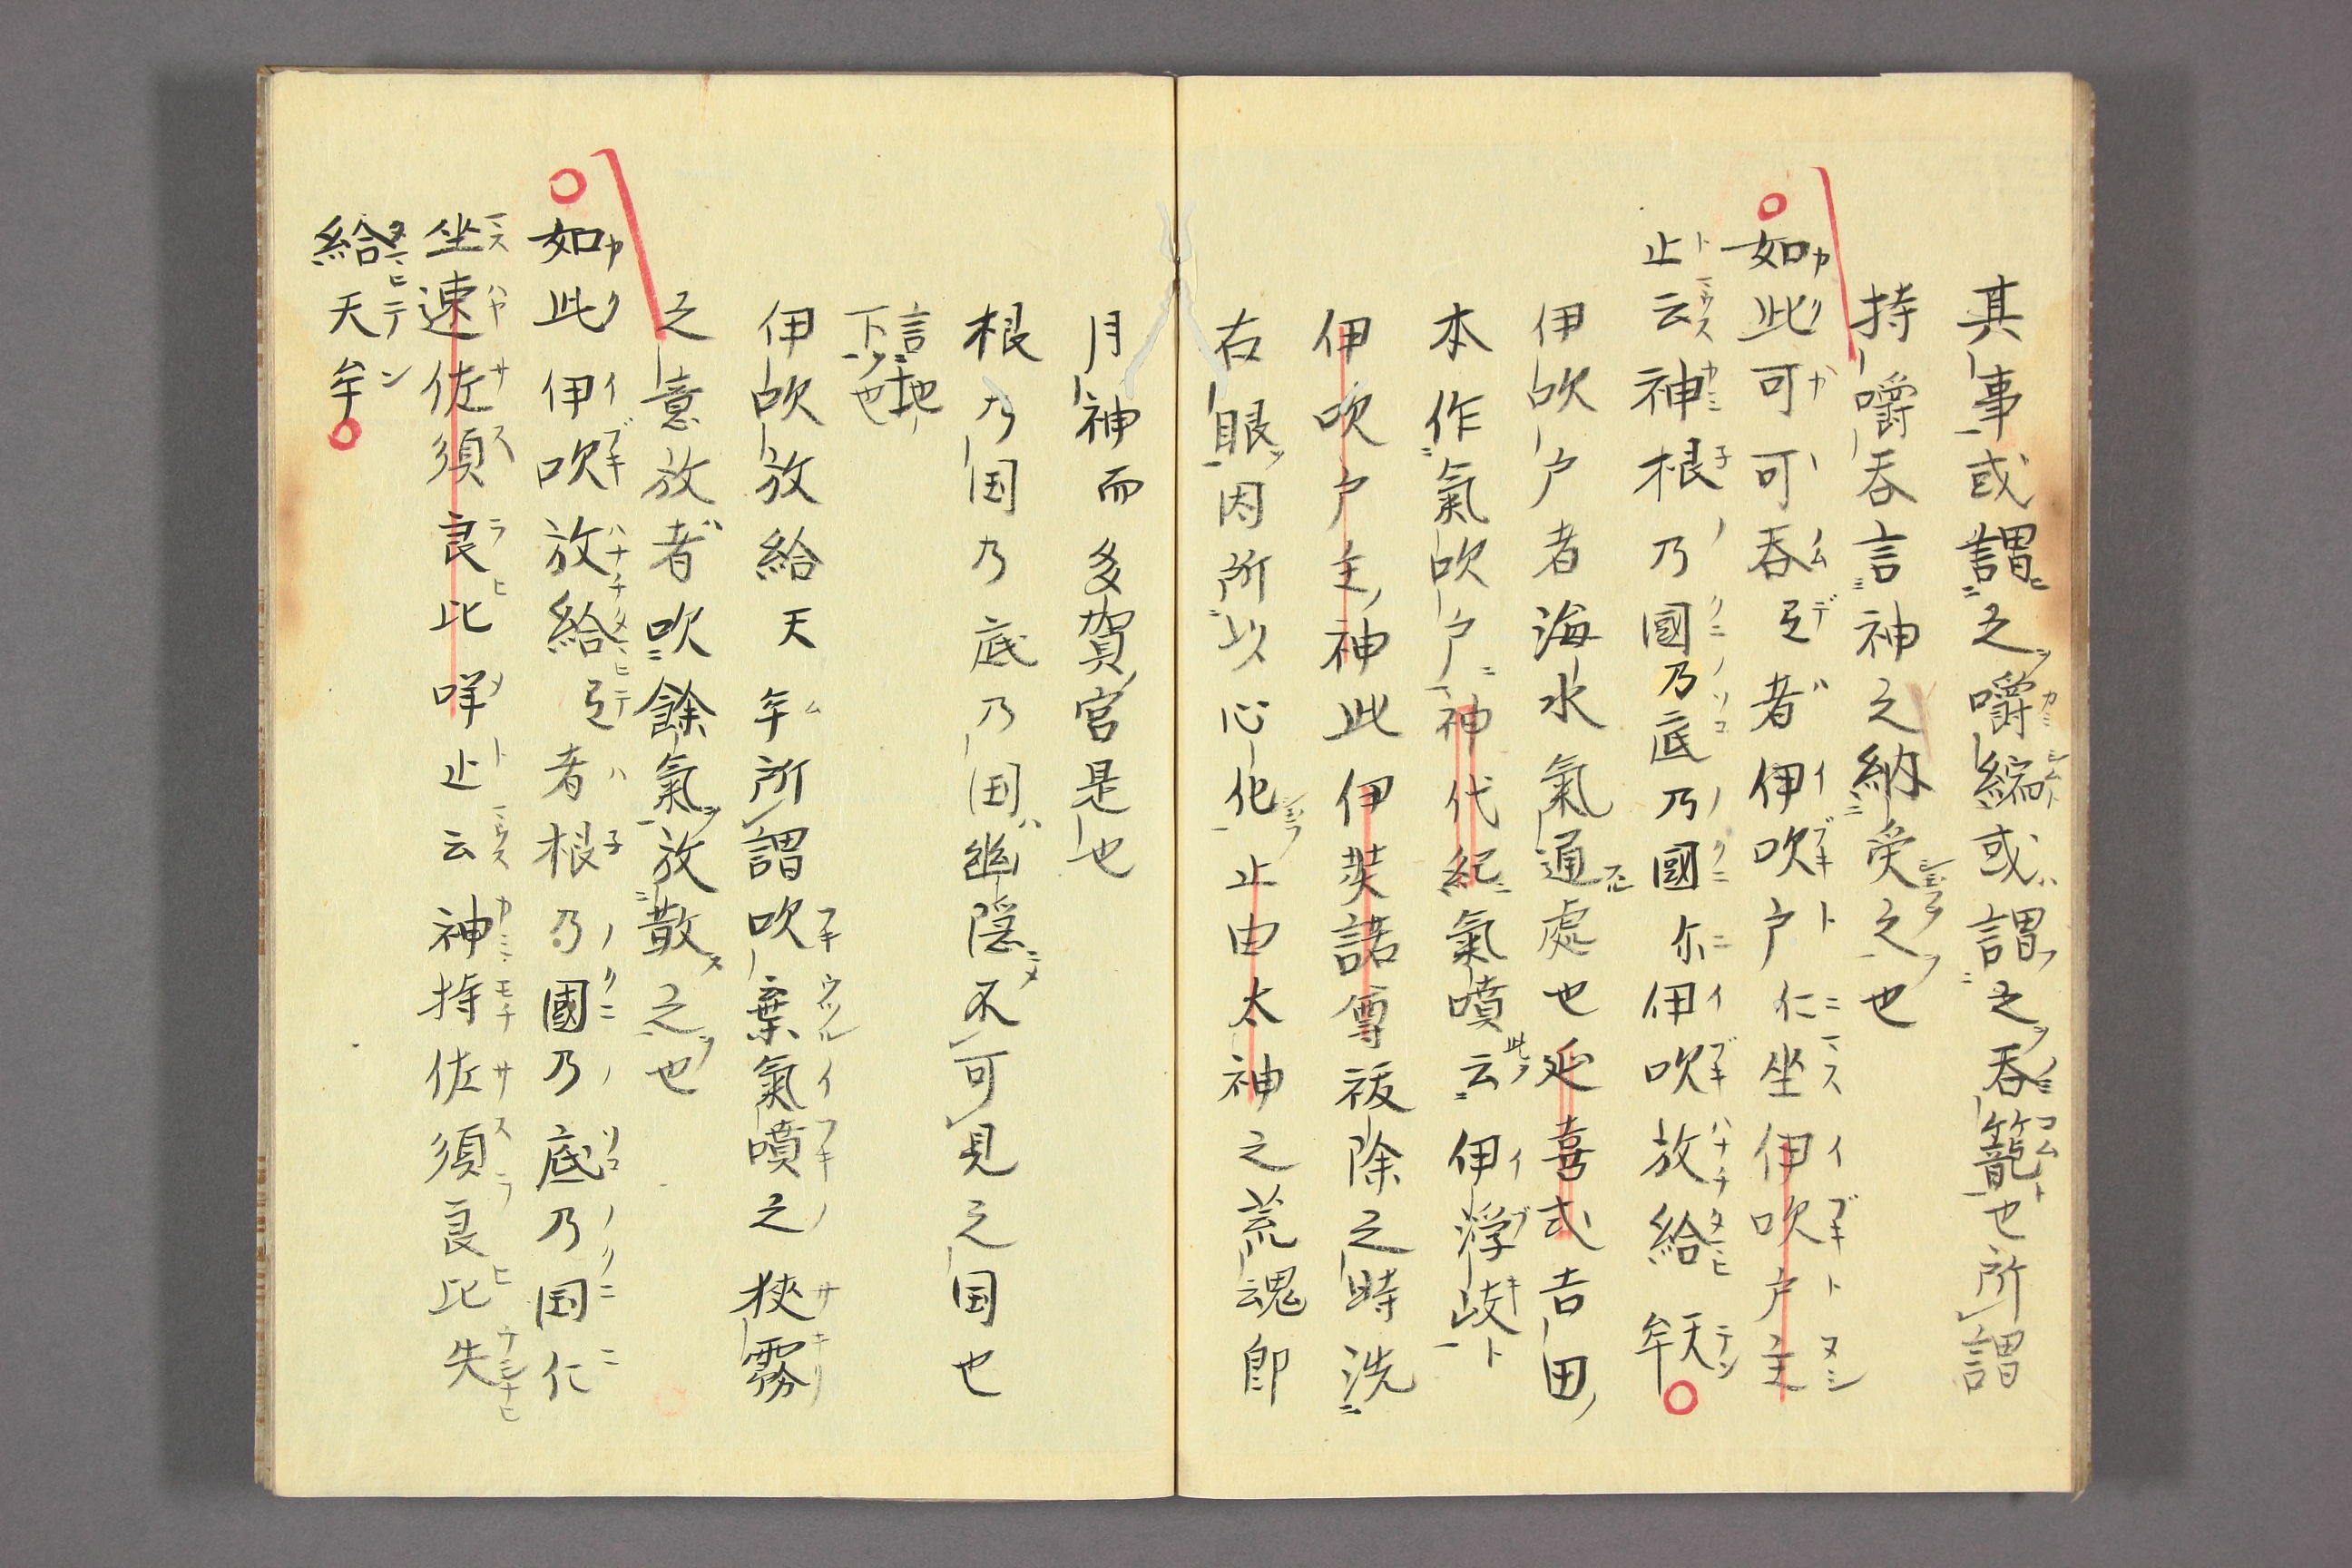 其事或謂之嚼縮或謂之呑籠也所謂
持嚼呑言神之納受之也
如此可可呑弖者伊吹戸仁坐伊吹戸主
止云神根乃國乃底乃國尓伊吹放給天牟
伊吹戸者海水氣通處也延喜式吉田
本作氣吹戸神代紀氣噴云伊浮岐
伊吹戸主神此伊弉諾尊祓除之時洗
右眼因所以心化止由太神之荒魂即
月神而多賀宮是也
根乃国乃底乃国幽隠不可見之国也
言地下也
伊吹放給天牟所謂吹棄氣噴之狹霧
之意放者吹餘氣放散之也
如此伊吹放給弖者根乃國乃底乃国仁
坐速佐須良比咩止云神持佐須良比失
給天牟